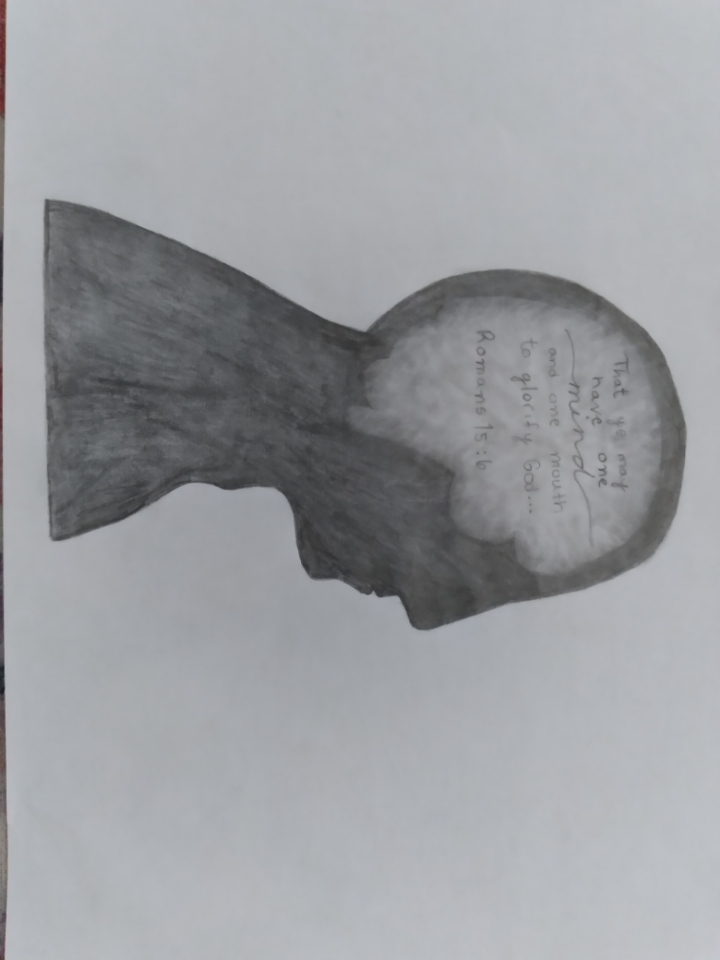 That ye may
have one
mind
and one mouth
to glorify God...
Romans 15:6